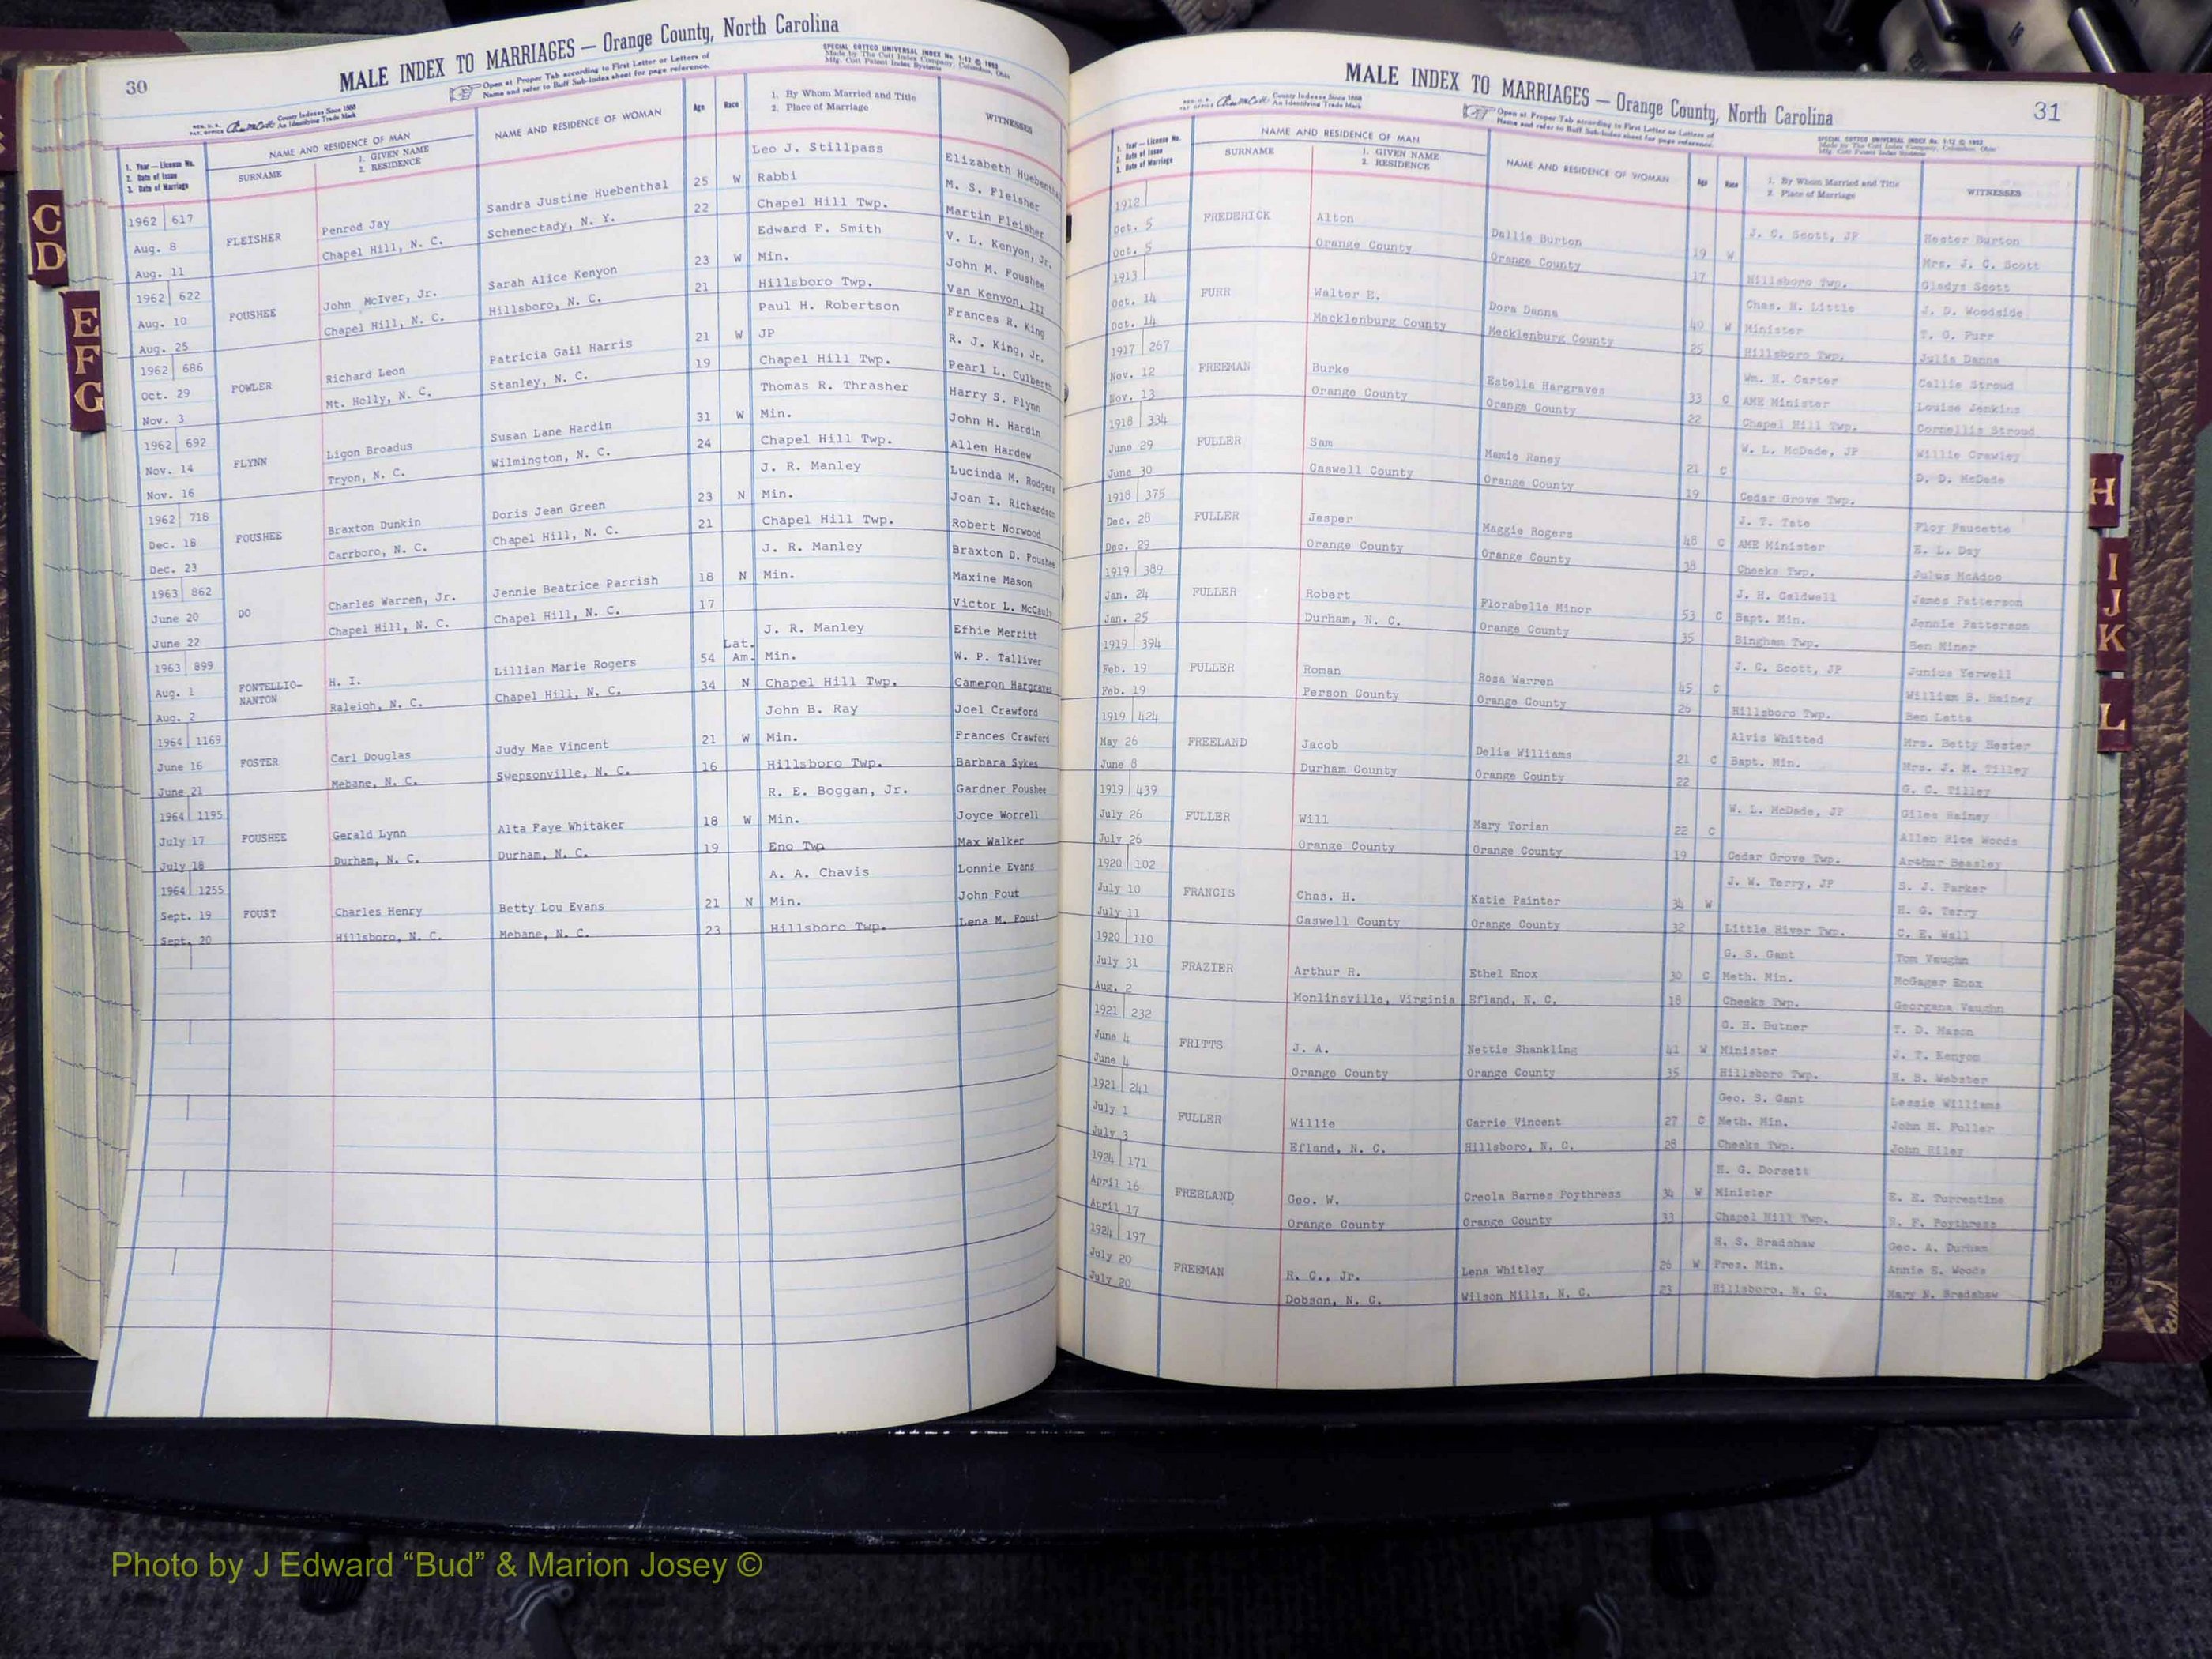 30
MALE INDEX TO MARRIAGES — Orange County, North Carolina
Open at Proper Tab according to First Letter or Letters of
Name and refer to Buff Sub-Index sheet for page reference.
SPECIAL COTTCO UNIVERSAL INDEX No. 1-12 © 1952
Made by The Cott Index Company, Columbus, Ohio
Mfg. Cott Patent Index Systems
County Indexes Since 1888
An Identifying Trade Mark
1. Year — License No.
2. Date of Issue
3. Date of Marriage
NAME AND RESIDENCE OF MAN
SURNAME
1. GIVEN NAME
2. RESIDENCE
NAME AND RESIDENCE OF WOMAN
Age
Race
1. By Whom Married and Title
2. Place of Marriage
WITNESSES
1962 617 Leo J. Stillpass Elizabeth Huebenthal
Aug. 8 FLEISHER Penrod Jay Sandra Justine Huebenthal 25 W Rabbi M. S. Fleisher
Aug. 11 Chapel Hill, N. C. Schenectady, N. Y. 22 Chapel Hill Twp. Martin Fleisher
1962 622 Edward F. Smith V. L. Kenyon, Jr.
Aug. 10 FOUSHEE John McIver, Jr. Sarah Alice Kenyon 23 W Min. John M. Foushee
Aug. 25 Chapel Hill, N. C. Hillsboro, N. C. 21 Hillsboro Twp. Van Kenyon, III
1962 686 Paul H. Robertson Frances R. King
Oct. 29 FOWLER Richard Leon Patricia Gail Harris 21 W JP R. J. King, Jr.
Nov. 3 Mt. Holly, N. C. Stanley, N. C. 19 Chapel Hill Twp. Pearl L. Culberth
1962 692 Thomas R. Thrasher Harry S. Flynn
Nov. 14 FLYNN Ligon Broadus Susan Lane Hardin 31 W Min. John H. Hardin
Nov. 16 Tryon, N. C. Wilmington, N. C. 24 Chapel Hill Twp. Allen Hardew
1962 718 J. R. Manley Lucinda M. Rodgers
Dec. 18 FOUSHEE Braxton Dunkin Doris Jean Green 23 N Min. Joan I. Richardson
Dec. 23 Carrboro, N. C. Chapel Hill, N. C. 21 Chapel Hill Twp. Robert Norwood
1963 862 J. R. Manley Braxton D. Foushee
June 20 DO Charles Warren, Jr. Jennie Beatrice Parrish 18 N Min. Maxine Mason
June 22 Chapel Hill, N. C. Chapel Hill, N. C. 17 Victor L. McCaule
1963 899 Lat. J. R. Manley Efhie Merritt
Aug. 1 FONTELLIO-NANTON H. I. Lillian Marie Rogers 54 Am. Min. W. P. Talliver
Aug. 2 Raleigh, N. C. Chapel Hill, N. C. 34 N Chapel Hill Twp. Cameron Hargraves
1964 1169 John B. Ray Joel Crawford
June 16 FOSTER Carl Douglas Judy Mae Vincent 21 W Min. Frances Crawford
June 21 Mebane, N. C. Swepsonville, N. C. 16 Hillsboro Twp. Barbara Sykes
1964 1195 R. E. Boggan, Jr. Gardner Foushee
July 17 FOUSHEE Gerald Lynn Alta Faye Whitaker 18 W Min. Joyce Worrell
July 18 Durham, N. C. Durham, N. C. 19 Eno Twp Max Walker
1964 1255 A. A. Chavis Lonnie Evans
Sept. 19 FOUST Charles Henry Betty Lou Evans 21 N Min. John Fout
Sept. 20 Hillsboro, N. C. Mebane, N. C. 23 Hillsboro Twp. Lena M. Foust
C
D
E
F
G
31
MALE INDEX TO MARRIAGES — Orange County, North Carolina
County Indexes Since 1888
An Identifying Trade Mark
Open at Proper Tab according to First Letter or Letters of
Name and refer to Buff Sub-Index sheet for page reference.
SPECIAL COTTCO UNIVERSAL INDEX No. 1-12 © 1952
Made by The Cott Index Company, Columbus, Ohio
Mfg. Cott Patent Index Systems
1. Year — License No.
2. Date of Issue
3. Date of Marriage
NAME AND RESIDENCE OF MAN
SURNAME
1. GIVEN NAME
2. RESIDENCE
NAME AND RESIDENCE OF WOMAN
Age
Race
1. By Whom Married and Title
2. Place of Marriage
WITNESSES
1912 J. C. Scott, JP Hester Burton
Oct. 5 FREDERICK Alton Dallie Burton 19 W Mrs. J. C. Scott
Oct. 5 Orange County Orange County 17 Hillsboro Twp. Gladys Scott
1913 Chas. H. Little J. D. Woodside
Oct. 14 FURR Walter E. Dora Danna 49 W Minister T. G. Furr
Oct. 14 Mecklenburg County Mecklenburg County 25 Hillsboro Twp. Julia Danna
1917 267 Wm. H. Carter Callie Stroud
Nov. 12 FREEMAN Burke Estella Hargraves 33 C AME Minister Louise Jenkins
Nov. 13 Orange County Orange County 22 Chapel Hill Twp. Cornellis Stroud
1918 334 W. L. McDade, JP Willie Crawley
June 29 FULLER Sam Mamie Raney 21 C D. D. McDade
June 30 Caswell County Orange County 19 Cedar Grove Twp.
1918 375 J. T. Tate Floy Faucette
Dec. 28 FULLER Jasper Maggie Rogers 48 C AME Minister E. L. Day
Dec. 29 Orange County Orange County 38 Cheeks Twp. Julus McAdoo
1919 389 J. H. Caldwell James Patterson
Jan. 24 FULLER Robert Florabelle Minor 53 C Bapt. Min. Jennie Patterson
Jan. 25 Durham, N. C. Orange County 35 Bingham Twp. Ben Miner
1919 394 J. C. Scott, JP Junius Yerwell
Feb. 19 FULLER Roman Rosa Warren 45 C William B. Rainey
Feb. 19 Person County Orange County 26 Hillsboro Twp. Ben Latta
1919 424 Alvis Whitted Mrs. Betty Hester
May 26 FREELAND Jacob Delia Williams 21 C Bapt. Min. Mrs. J. M. Tilley
June 8 Durham County Orange County 22 G. C. Tilley
1919 439 W. L. McDade, JP Giles Rainey
July 26 FULLER Will Mary Torian 22 C Allen Rice Woods
July 26 Orange County Orange County 19 Cedar Grove Twp. Arthur Beasley
1920 102 J. W. Terry, JP S. J. Parker
July 10 FRANCIS Chas. H. Katie Painter 34 W H. G. Terry
July 11 Caswell County Orange County 32 Little River Twp. C. E. Wall
1920 110 G. S. Gant Tom Vaughn
July 31 FRAZIER Arthur R. Ethel Enox 30 C Meth. Min. McGager Enox
Aug. 2 Monlinsville, Virginia Efland, N. C. 18 Cheeks Twp. Georgana Vaughn
1921 232 G. H. Butner T. D. Mason
June 4 FRITTS J. A. Nettie Shankling 41 W Minister J. T. Kenyon
June 4 Orange County Orange County 35 Hillsboro Twp. H. B. Webster
1921 241 Geo. S. Gant Lessie Williams
July 1 FULLER Willie Carrie Vincent 27 C Meth. Min. John H. Fuller
July 3 Efland, N. C. Hillsboro, N. C. 28 Cheeks Twp. John Riley
1924 171 H. G. Dorsett
April 16 FREELAND Geo. W. Creola Barnes Poythress 34 W Minister E. E. Turrentine
April 17 Orange County Orange County 33 Chapel Hill Twp. R. F. Poythress
1924 197 H. S. Bradshaw Geo. A. Durham
July 20 FREEMAN R. C., Jr. Lena Whitley 26 W Pres. Min. Annie E. Woods
July 20 Dobson, N. C. Wilson Mills, N. C. 23 Hillsboro, N. C. Mary N. Bradshaw
H
I
J
K
L
Photo by J Edward “Bud” & Marion Josey ©